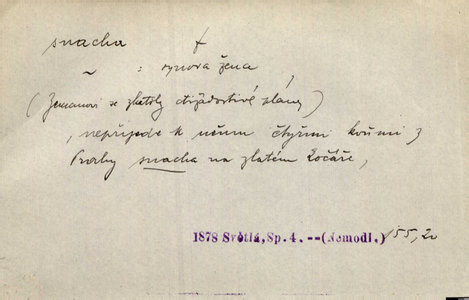 snacha f
~ : synova žena
(Zemanovi se zhatily ctižádostivé plány)
, nepřijede k němu čtyřmi koňmi
snacha na zlatém kočáře,
1878 Světlá, Sp. 4. -- (Nemodl.) 155, 2